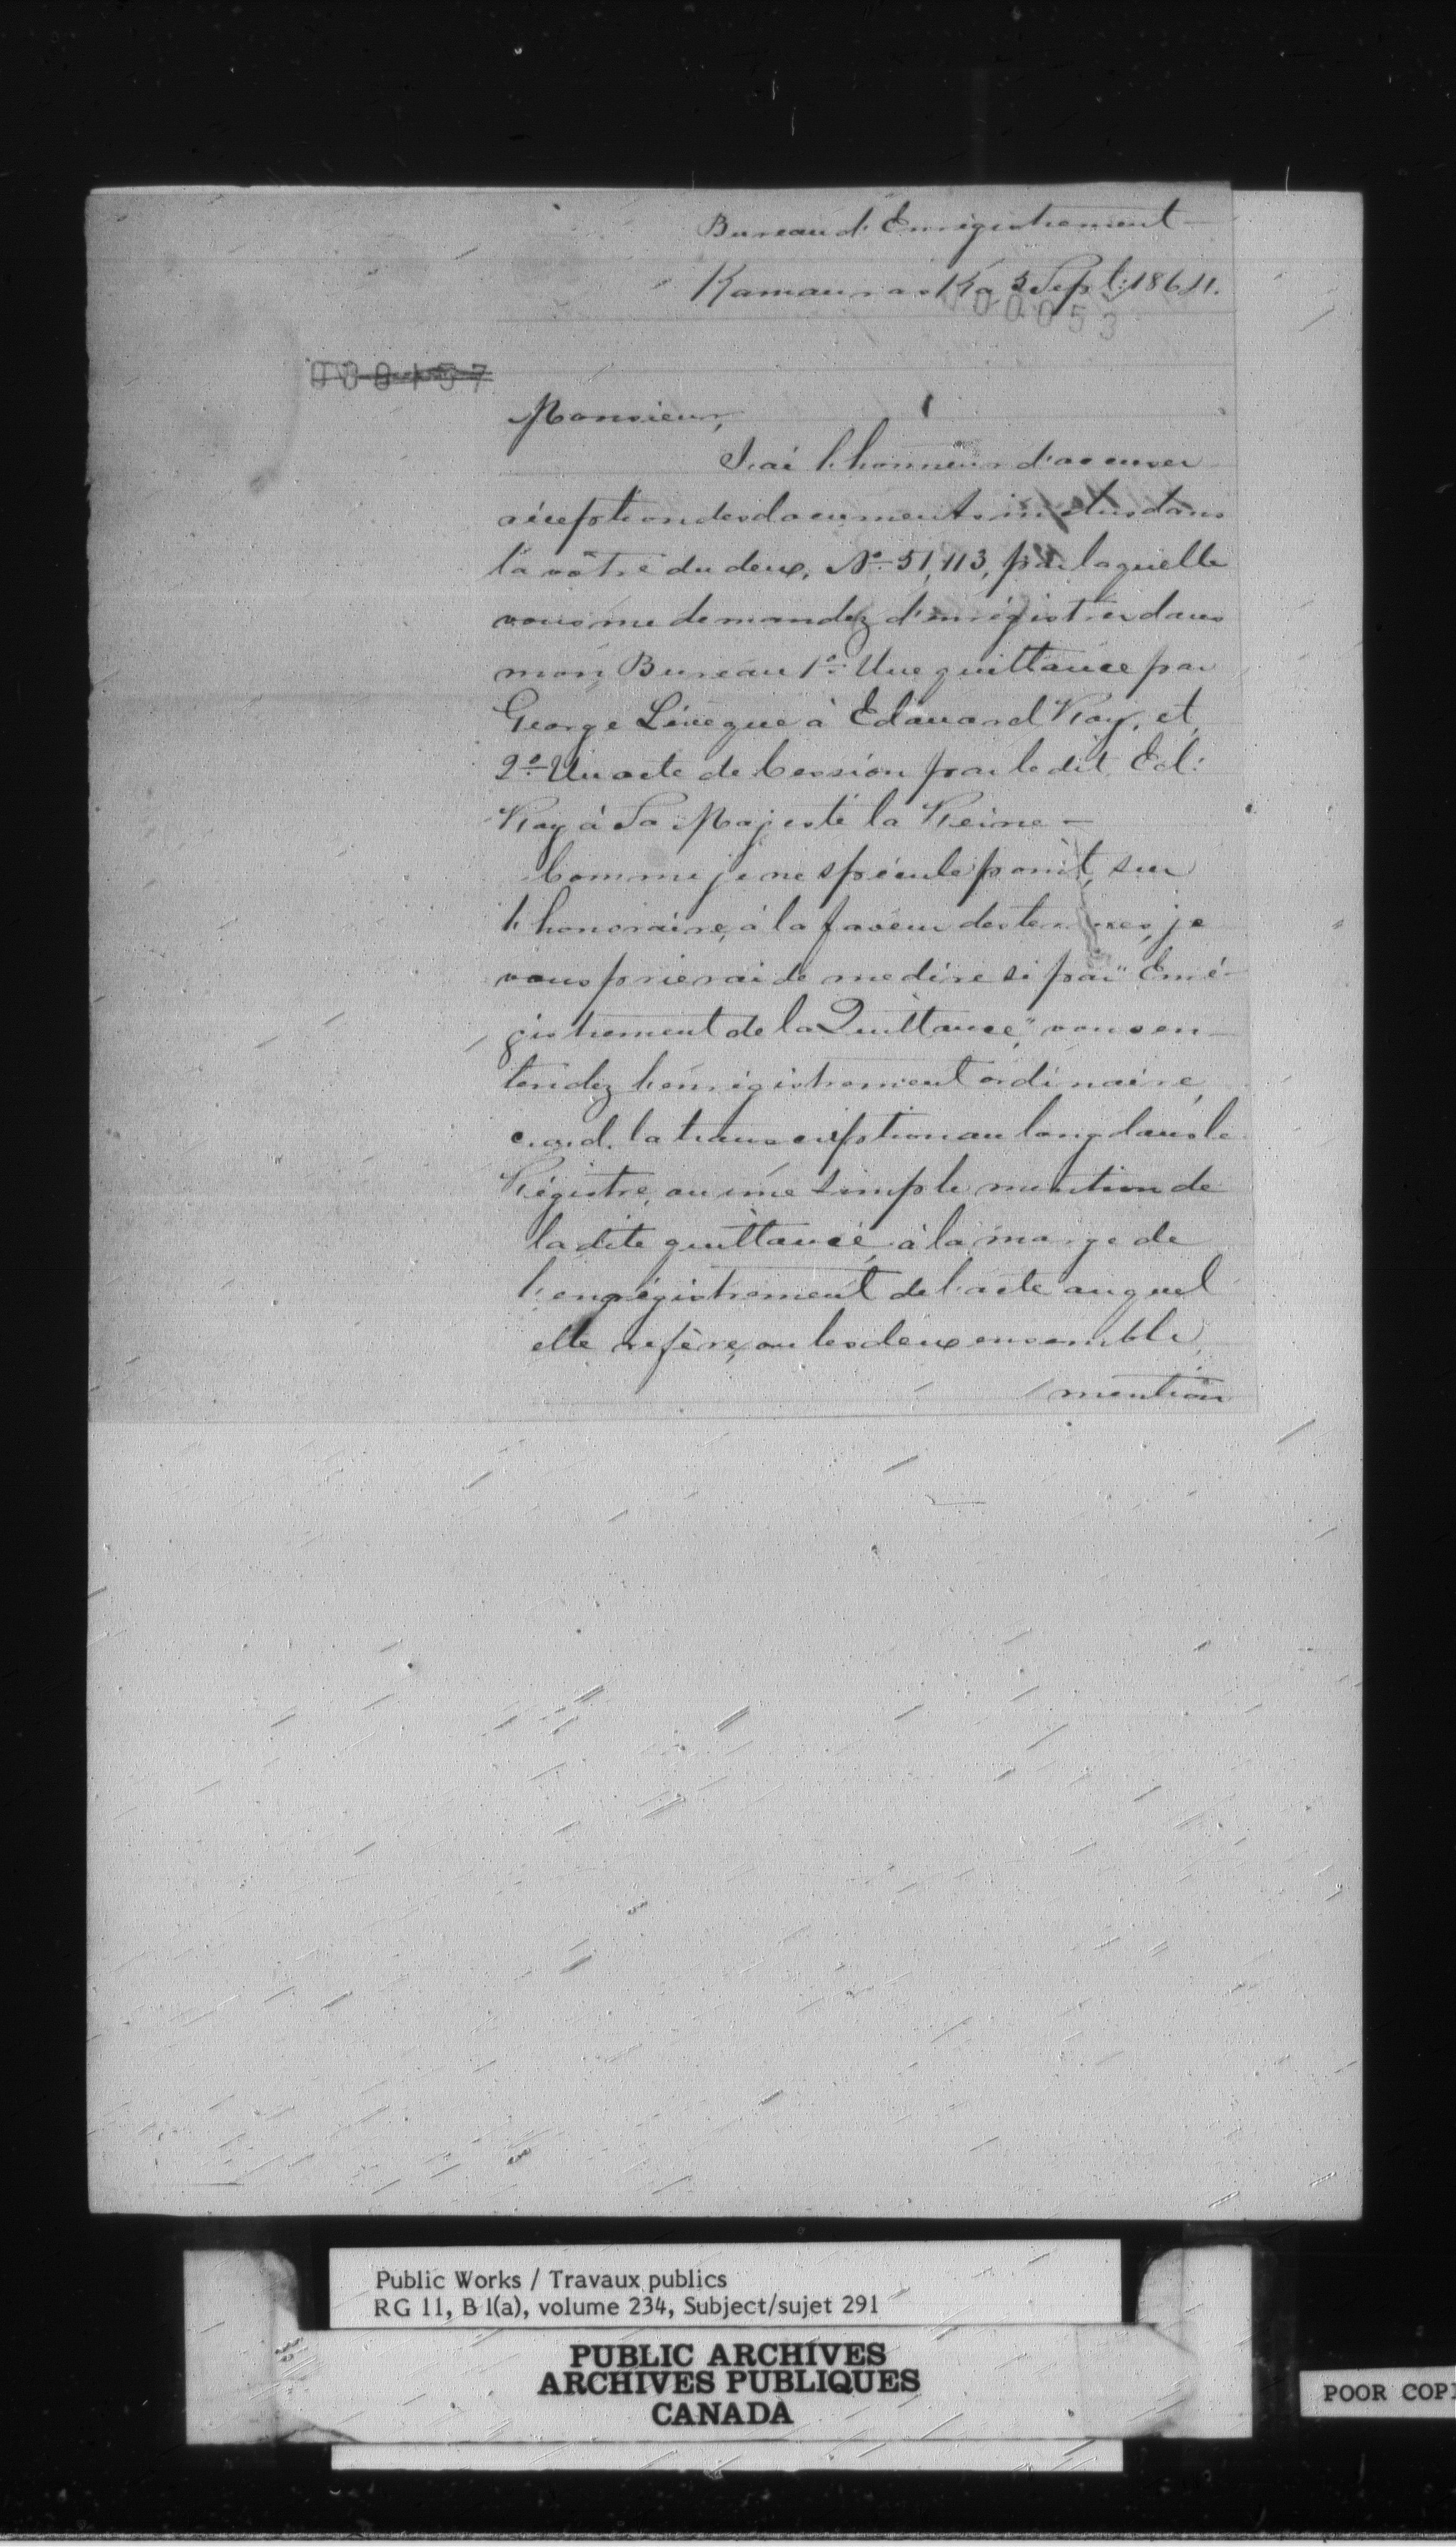 Bureau d'Enrégistrement
Kamouraska 5 Sept: 1864.
000053
000157
Monsieur,
J'ai l'honneur d'accuser
réception des documents inclus dans
la vôtre du deux, No. 51,113, par laquelle
vous me demandez d'enrégistrer dans
mon Bureau 1o. Une quittance par
George Lévêque à Edouard Roy, et,
2o. Un acte de Cession par le dit Ed:
Roy à Sa Majesté la Reine —
Comme je ne spécule point, sur
l'honoraire, à la faveur des termes, je
vous prierai de me dire si par "Enré-
gistrement de la Quittance," vous en-
tendez l'enrégistrement ordinaire,
c.a.d. la transcription au long dans le
Régistre, ou une simple mention de
la dite quittance, à la marge de
l'enrégistrement de l'acte auquel
elle refère, ou les deux ensemble,
/mention
Public Works / Travaux publics
RG 11, B 1(a), volume 234, Subject/sujet 291
PUBLIC ARCHIVES
ARCHIVES PUBLIQUES
CANADA
POOR COPI